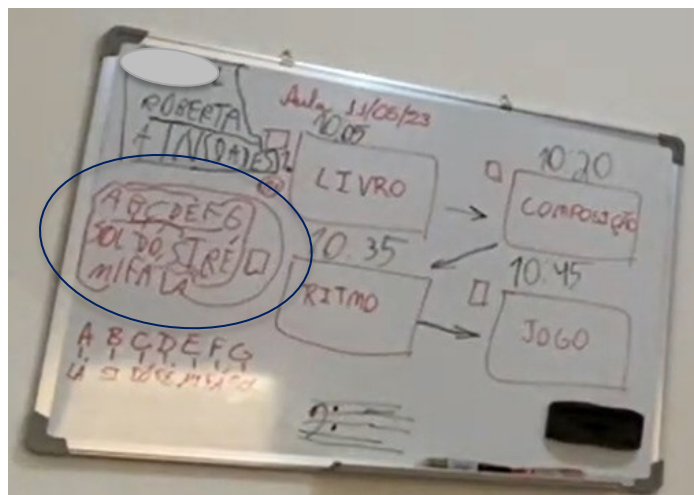 ROBERTA
Aula 11/05/23
10:05
LIVRO
10:20
COMPOSIÇÃO
10:35
RITMO
10:45
JOGO
A B C D E F G
SOL DÓ, SI RÉ
MI FA LA
A B C D E F G
LÁ SI DÓ RÉ MI FÁ SOL